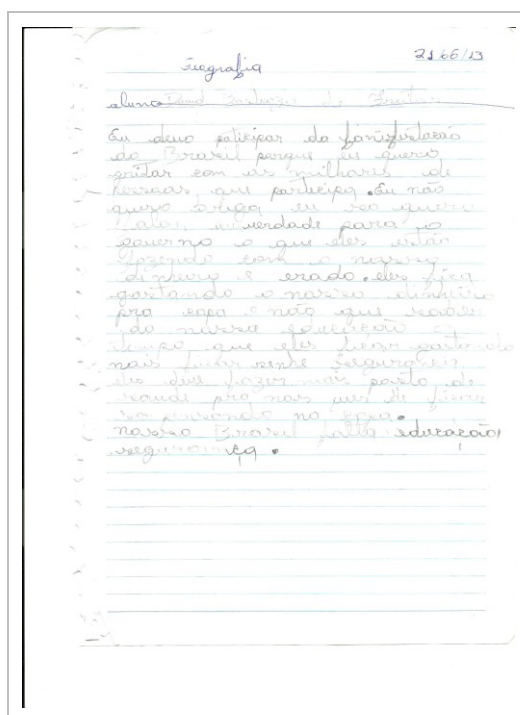 Geografia 21/06/13
aluno David de
Eu devo paticipar da
do Brasil porque eu quero
gritar com as milhares de
pessoas que participa. Eu não
quero briga eu so quero
falar a verdade para o
governo o que eles estão
fazendo com o nosso
dinheiro e erado. eles fica
gastando o nosso dinheiro
pra copa e não que
da nossa educação o
tempo que eles ficar gastando
mais ficar
eles deve fazer mais posto de
saude pra nos
na copa.
nosso Brasil falta educação,